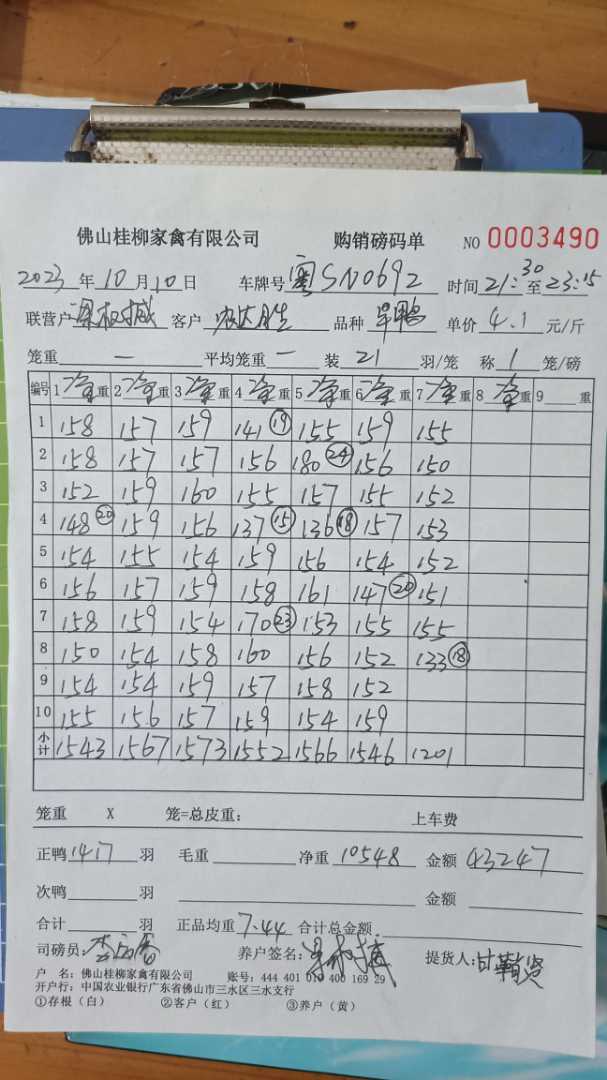 佛山桂柳家禽有限公司 购销磅码单 NO 0003490
2023年10月10日 车牌号粤SN0692 时间21:30至23:15
联营户梁权威 客户 品种旱鸭 单价4.1元/斤
笼重— 平均笼重— 装21羽/笼 称1笼/磅
编号 1净重 2净重 3净重 4净重 5净重 6净重 7净重 8净重 9重
1 158 157 159 141⑲ 155 159 155
2 158 157 157 156 180㉔ 156 150
3 152 159 160 155 157 155 152
4 148⑳ 159 156 137⑮ 136⑱ 157 153
5 154 155 154 159 156 154 152
6 156 157 159 158 161 147⑳ 151
7 158 159 154 170㉓ 153 155 155
8 150 154 158 160 156 152 133⑱
9 154 154 159 157 158 152
10 155 156 157 159 154 159
小计 1543 1567 1573 1552 1566 1546 1201
笼重 X 笼=总皮重: 上车费
正鸭1417羽 毛重 净重10548 金额43247
次鸭 羽 金额
合计 羽 正品均重7.44 合计总金额
司磅员: 养户签名: 提货人:甘
户 名:佛山桂柳家禽有限公司 账号:444 401 010 400 169 29
开户行:中国农业银行广东省佛山市三水区三水支行
①存根(白) ②客户(红) ③养户(黄)